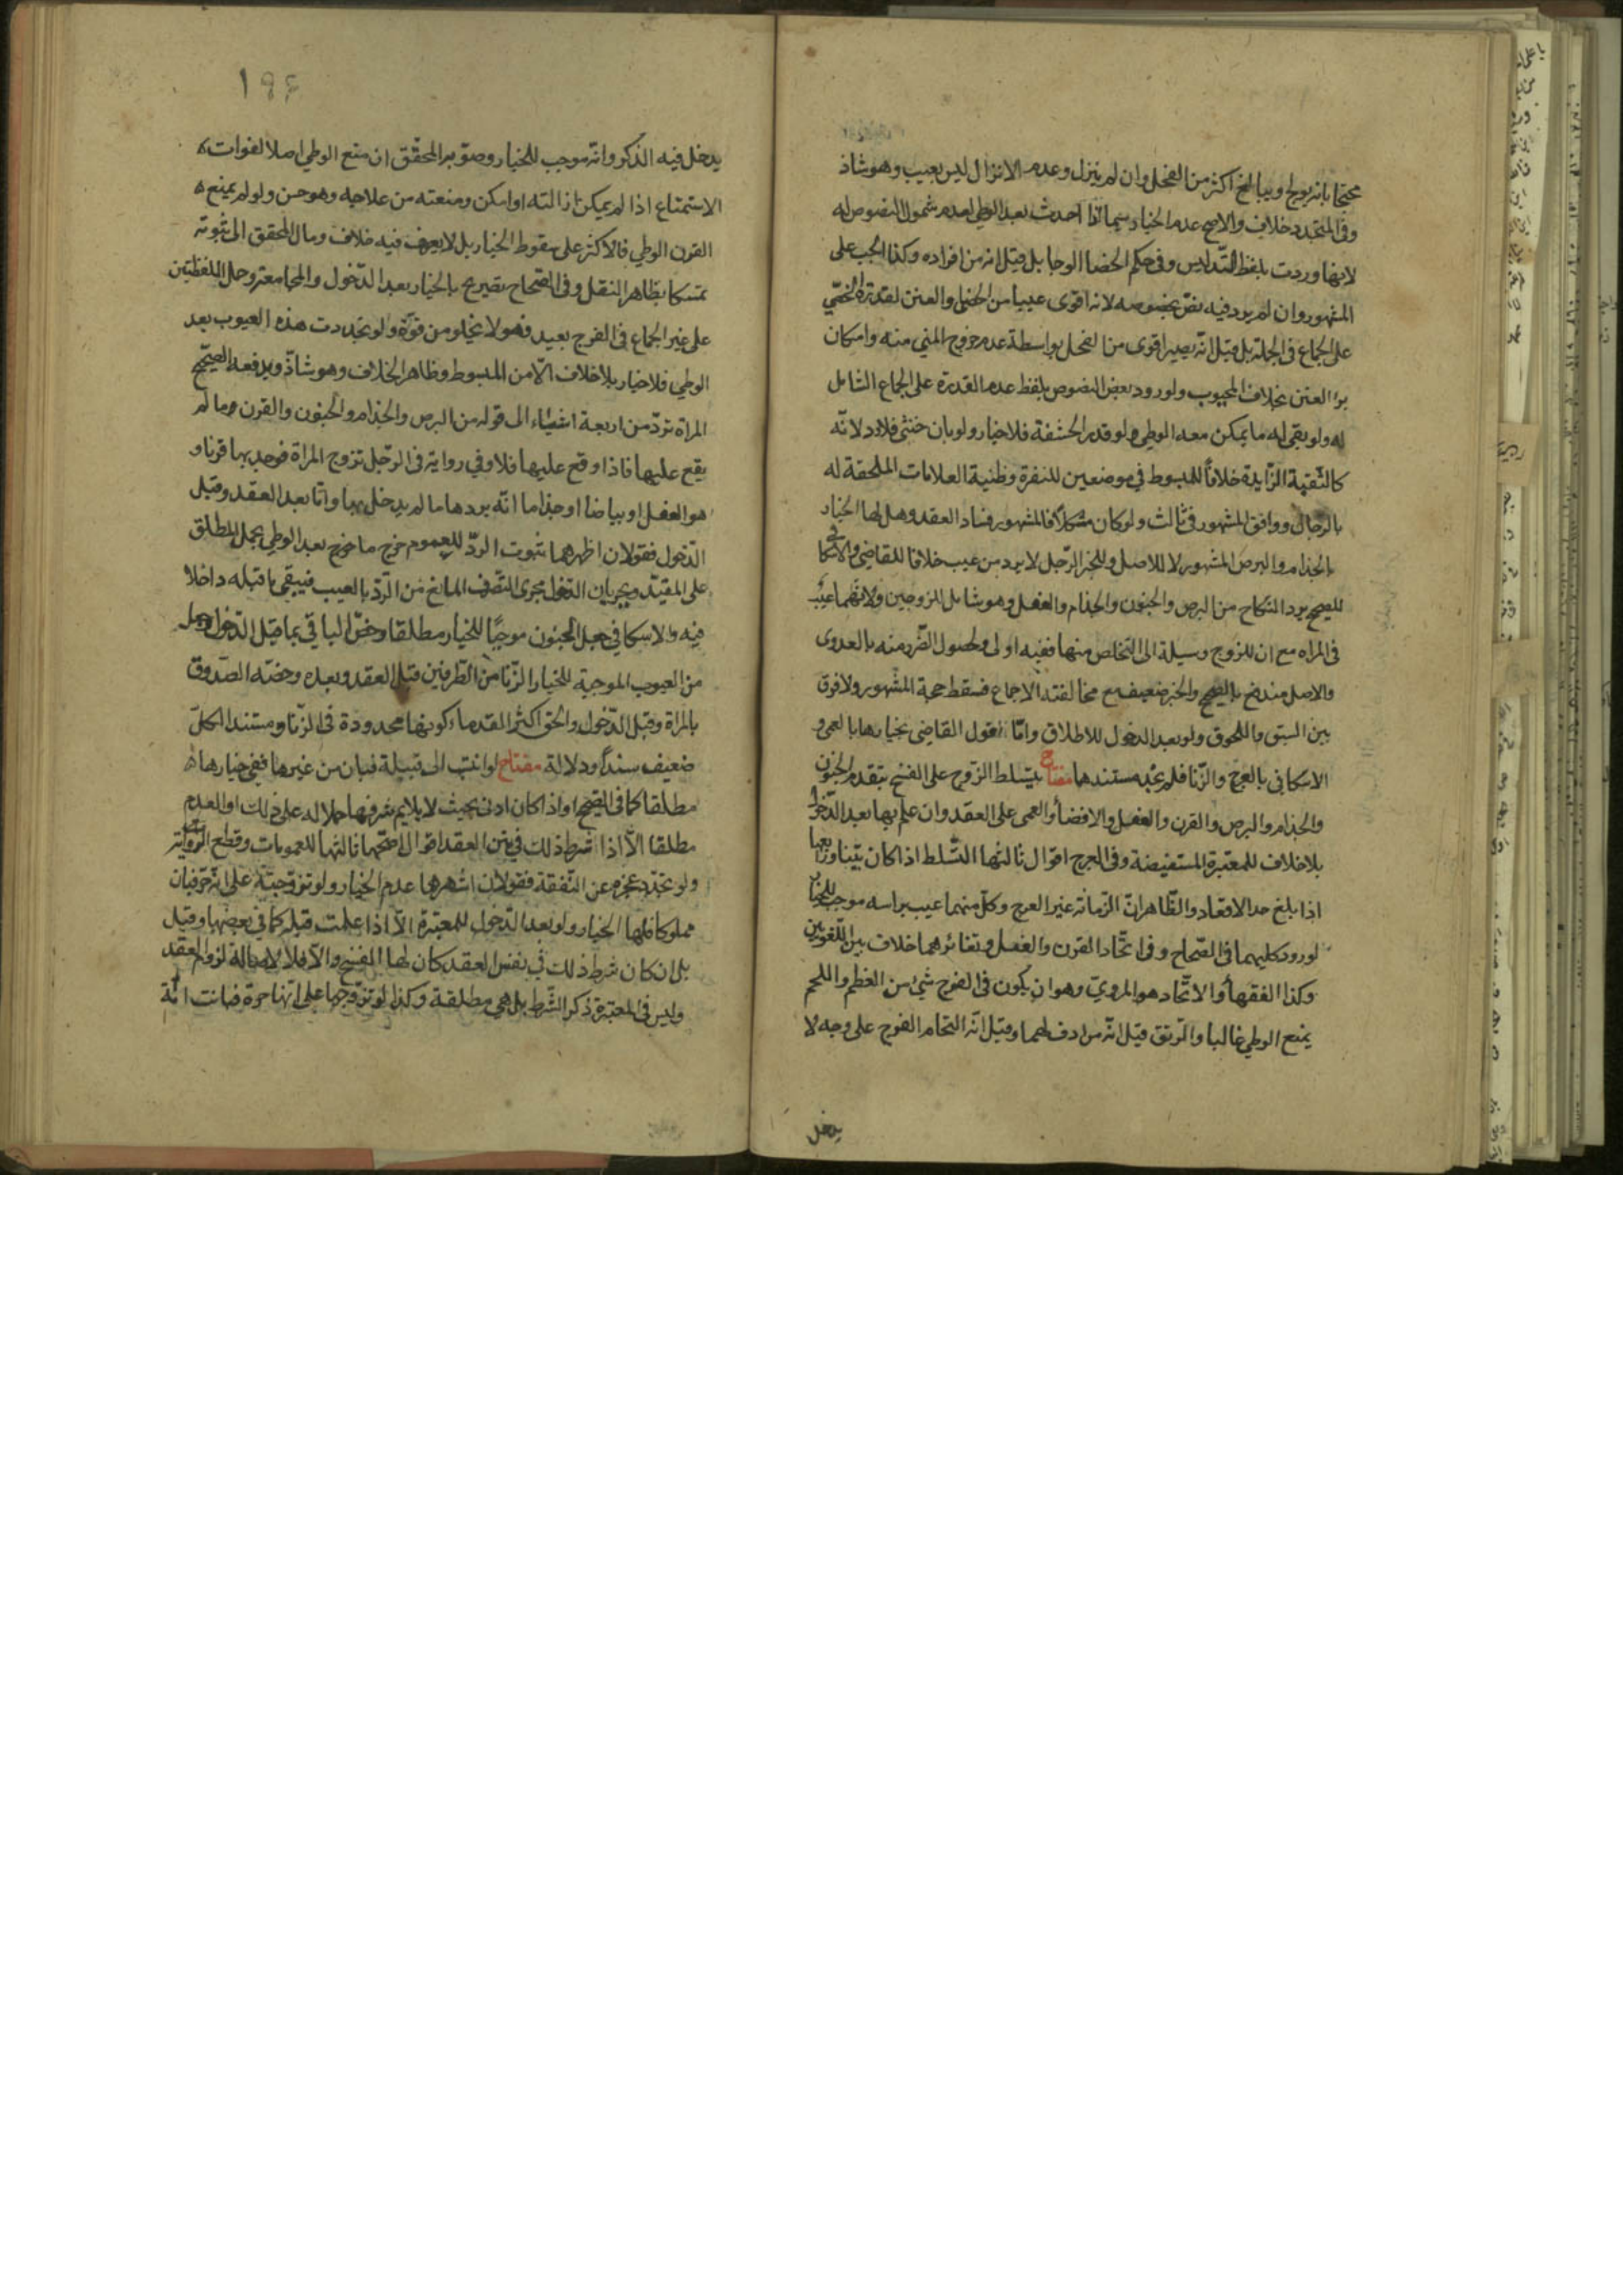 محتجا بانه يولج ويبالغ اكثر من الفحل وان لم ينزل وعدم الانزال ليس بعيب وهو شاذ
وفى المتجدد خلاف والاصح عدم الخيار سيما اذا احدث بعد الوطي لعدم شمول النصوص له
لانها وردت بلفظ التدليس وفى حكم الخصا الوجا بل قيل انه من افراده وكذا الجب على
المشهور وان لم يرد فيه نص بخصوصه لانه اقوى عيبا من الخصا والعنن لقدرة الخصي
على الجماع فى الجملة بل قيل انه يصير اقوى من الفحل بواسطة عدم خروج المني منه وامكان
برا العنن بخلاف المجبوب ولورود بعض النصوص بلفظ عدم القدرة على الجماع الشامل
له ولو بقى له ما يمكن معه الوطي ولو قدر الحشفة فلا خيار ولو بان خنثى فلا رد لانه
كالثقبة الزايدة خلافا للمبسوط في موضعين للنفرة وظنية العلامات الملحقة له
بالرجال ووافق المشهور فى ثالث ولو كان مشكلا فالمشهور فساد العقد وهل لها الخيار
بالجذام والبرص المشهور لا للاصل وللخبر الرجل لا يرد من عيب خلافا للقاضي والاسكافي
للصحيح يرد النكاح من البرص والجنون والجذام والعفل وهو شامل للزوجين ولانهما عيب
فى المراه مع ان للزوج وسيلة الى التخلص منها ففيه اولى ولحصول الضرر منه بالعدوى
والاصل مندفع بالصحيح والخبر ضعيف مع مخالفته الاجماع فسقط حجة المشهور ولا فرق
بين السبق واللحوق ولو بعد الدخول للاطلاق واما قول القاضى بخيارها بالعمى و
الاسكافى بالعرج والزنا فلم نجد مستندهما مفتاح يتسلط الزوج على الفسخ بتقدم الجنون
والجذام والبرص والقرن والعفل والافضأ والعمى على العقد وان علم بها بعد الدخول
بلا خلاف للمعتبرة المستفيضة وفى العرج اقوال ثالثها التسلط اذا كان بينا ورابعها
اذا بلغ حد الاقعاد والظاهر ان الزمانه غير العرج وكل منهما عيب براسه موجب للخيار
لورود كليهما فى الصحاح وفى اتحاد القرن والعفل وتغائرهما خلاف بين اللغويين
وكذا الفقهأ والاتحاد هو المروي وهو ان يكون فى الفرج شئ من العظم واللحم
يمنع الوطي غالبا والرتق قيل انه مرادف لهما وقيل انه التحام الفرج على وجه لا
يدخل
١٩٤
يدخل فيه الذكر وانه موجب للخيار وصوبه المحقق ان منع الوطي اصلا لفوات
الاستمتاع اذا لم يمكن ازالته او امكن ومنعته من علاجه وهو حسن ولو لم يمنع
القرن الوطي فالاكثر على سقوط الخيار بل لا يعرف فيه خلاف ومال المحقق الى ثبوته
تمسكا بظاهر النقل وفى الصحاح تصريح بالخيار بعد الدخول والمجامعة وحمل اللفظتين
على غير الجماع فى الفرج بعيد فهو لا يخلو من قوة ولو تجددت هذه العيوب بعد
الوطي فلا خيار بلا خلاف الا من المبسوط وظاهر الخلاف وهو شاذ ويدفعه الصحيح
المراة ترد من اربعة اشياء الى قوله من البرص والجذام والجنون والقرن وما لم
يقع عليها فاذا وقع عليها فلا وفي رواية فى الرجل تزوج المراة فوجد بها قرنا و
هو العفل او بياضا او جذاما انه يردها ما لم يدخل بها واما بعد العقد وقبل
الدخول فقولان اظهرهما ثبوت الرد للعموم خرج ما خرج بعد الوطي بحمل المطلق
على المقيد وبجريان الدخول مجرى التصرف المانع من الرد بالعيب فيبقى ما قبله داخلا
فيه والاسكافي جعل الجنون موجبا للخيار مطلقا وخص الباقي بما قبل الدخول وجعل
من العيوب الموجبة للخيار الزنا من الطرفين قبل العقد وبعده وخصه الصدوق
بالمراة وقبل الدخول والحق اكثر القدماء كونها محدودة فى الزنا ومستند الكل
ضعيف سندا ودلالة مفتاح لو انتسب الى قبيلة فبان من غيرها ففى خيارها
مطلقا كما فى الصحيح او اذا كان ادنى بحيث لا يلايم شرفها حملا له على ذلك او العدم
مطلقا الا اذا شرط ذلك فى متن العقد اقوال اصحها ثالثها للعمومات وقطع الرواية
ولو تجدد عجزه عن النفقة فقولان اشهرهما عدم الخيار ولو تزوجته على انه حر فبان
مملوكا فلها الخيار ولو بعد الدخول للمعتبرة الا اذا علمت قبله كما في بعضها وقيل
بل ان كان شرط ذلك في نفس العقد كان لها الفسخ والا فلا لاصالة لزوم العقد
وليس فى المعتبرة ذكر الشرط بل هي مطلقة وكذا لو تزوجها على انها حرة فبانت امة